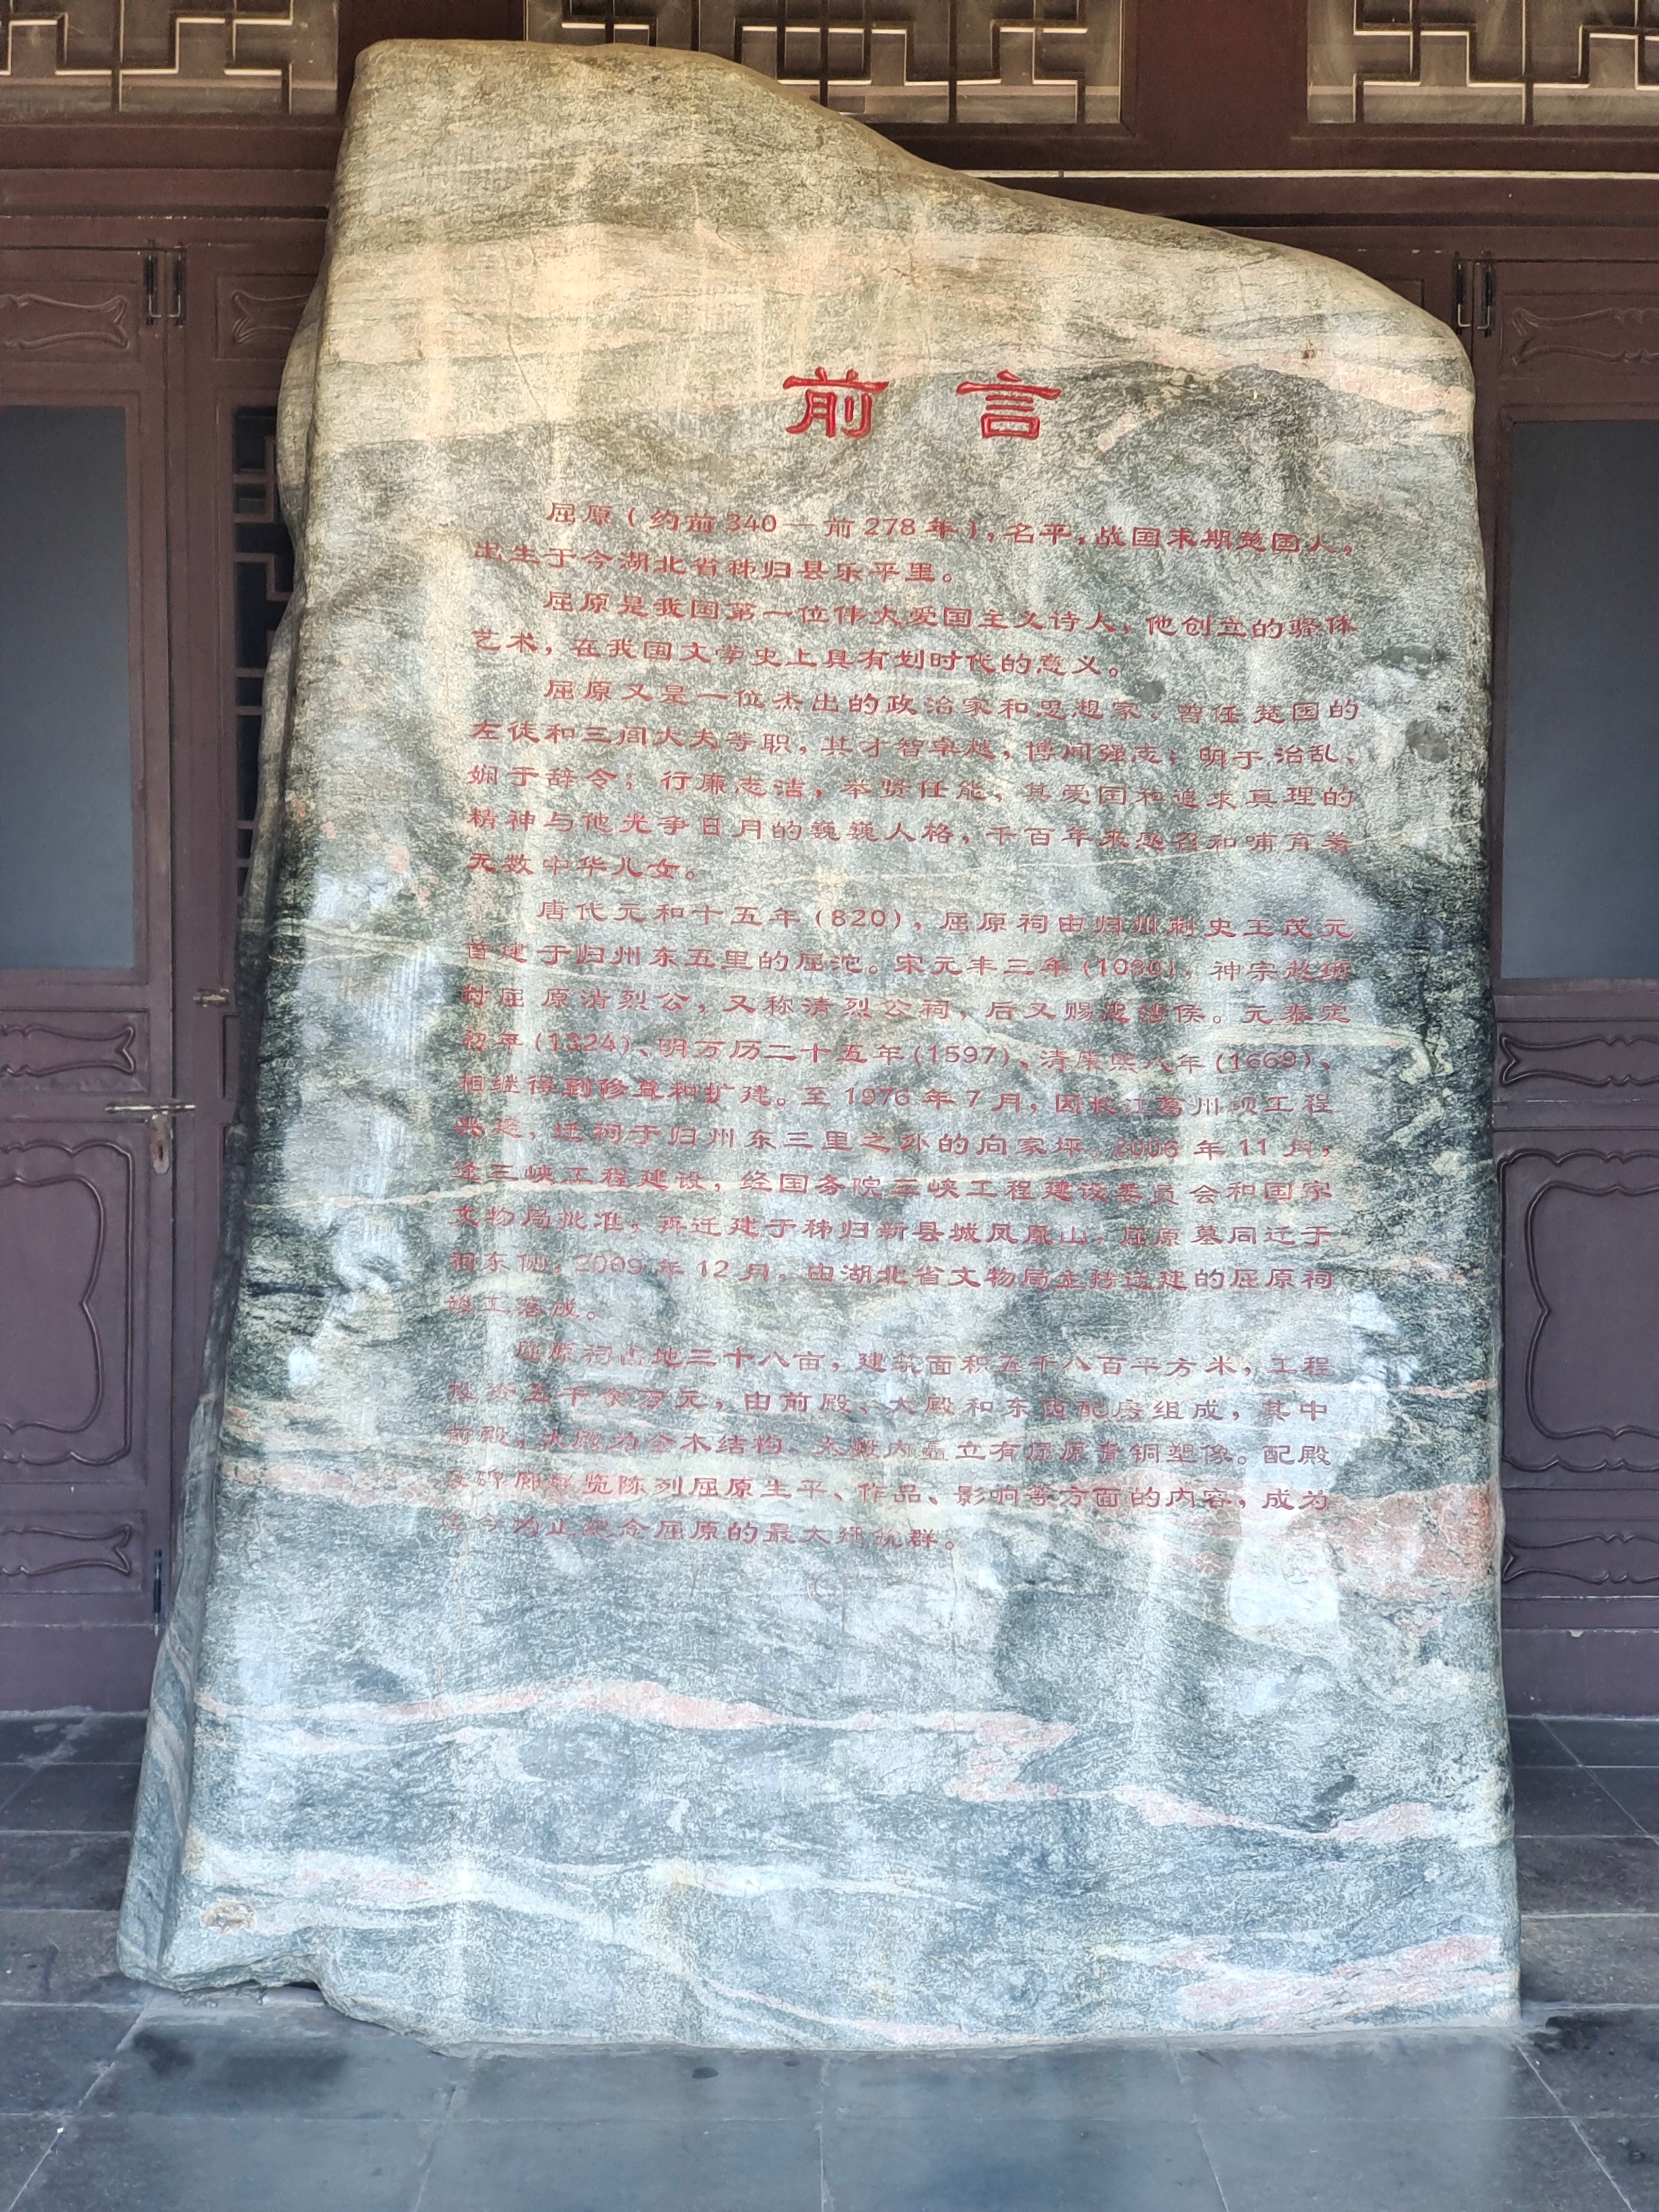 前言
屈原(约前340—前278年),名平,战国末期楚国人,
出生于今湖北省秭归县乐平里。
屈原是我国第一位伟大爱国主义诗人,他创立的骚体
艺术,在我国文学史上具有划时代的意义。
屈原又是一位杰出的政治家和思想家,曾任楚国的
左徒和三闾大夫等职,其才智卓越,博闻强志;明于治乱、
娴于辞令;行廉志洁,举贤任能,其爱国和追求真理的
精神与他光争日月的巍巍人格,千百年来感召和哺育着
无数中华儿女。
唐代元和十五年(820),屈原祠由归州刺史王茂元
首建于归州东五里的屈沱。宋元丰三年(1080),神宗赵顼
封屈原清烈公,又称清烈公祠,后又赐洁侯。元泰定
初年(1324)、明万历二十五年(1597)、清康熙八年(1669)、
相继得到修葺和扩建。至1976年7月,因长江葛州坝工程
兴建,迁祠于归州东三里之外的向家坪。2006年11月,
逢三峡工程建设,经国务院三峡工程建设委员会和国家
文物局批准,再迁建于秭归新县城凤凰山,屈原墓同迁于
祠东侧;2009年12月,由湖北省文物局主持迁建的屈原祠
竣工落成。
屈原祠占地三十八亩,建筑面积五千八百平方米,工程
投资五千余万元,由前殿、大殿和东西配房组成,其中
前殿,大殿为全木结构、大殿内矗立有屈原青铜塑像。配殿
及碑廊展览陈列屈原生平、作品、影响等方面的内容,成为
迄今为止纪念屈原的最大建筑群。